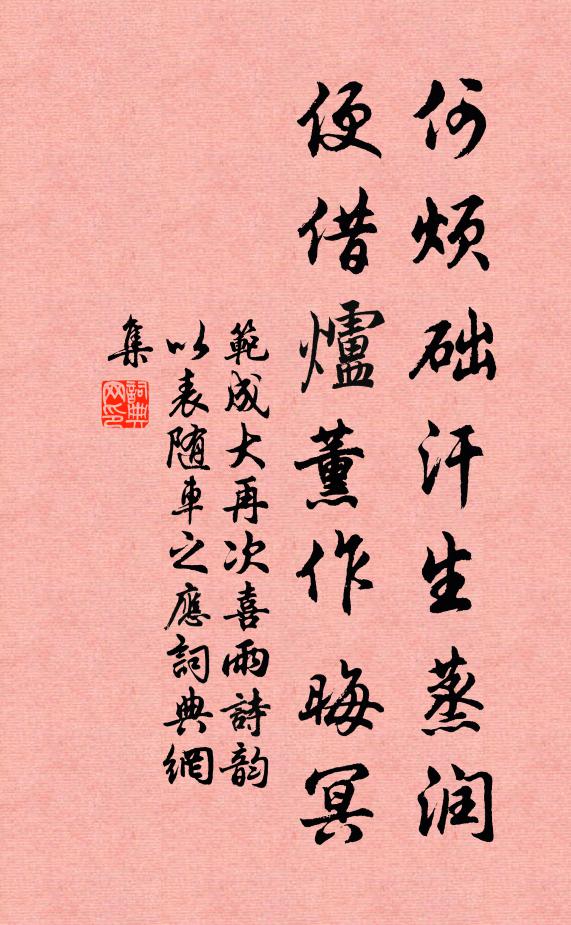 何烦础汗生蒸润
便借爐薰作晦冥
範成大再次喜雨詩韵
以表随車之應詞典網
集
詞典
网印